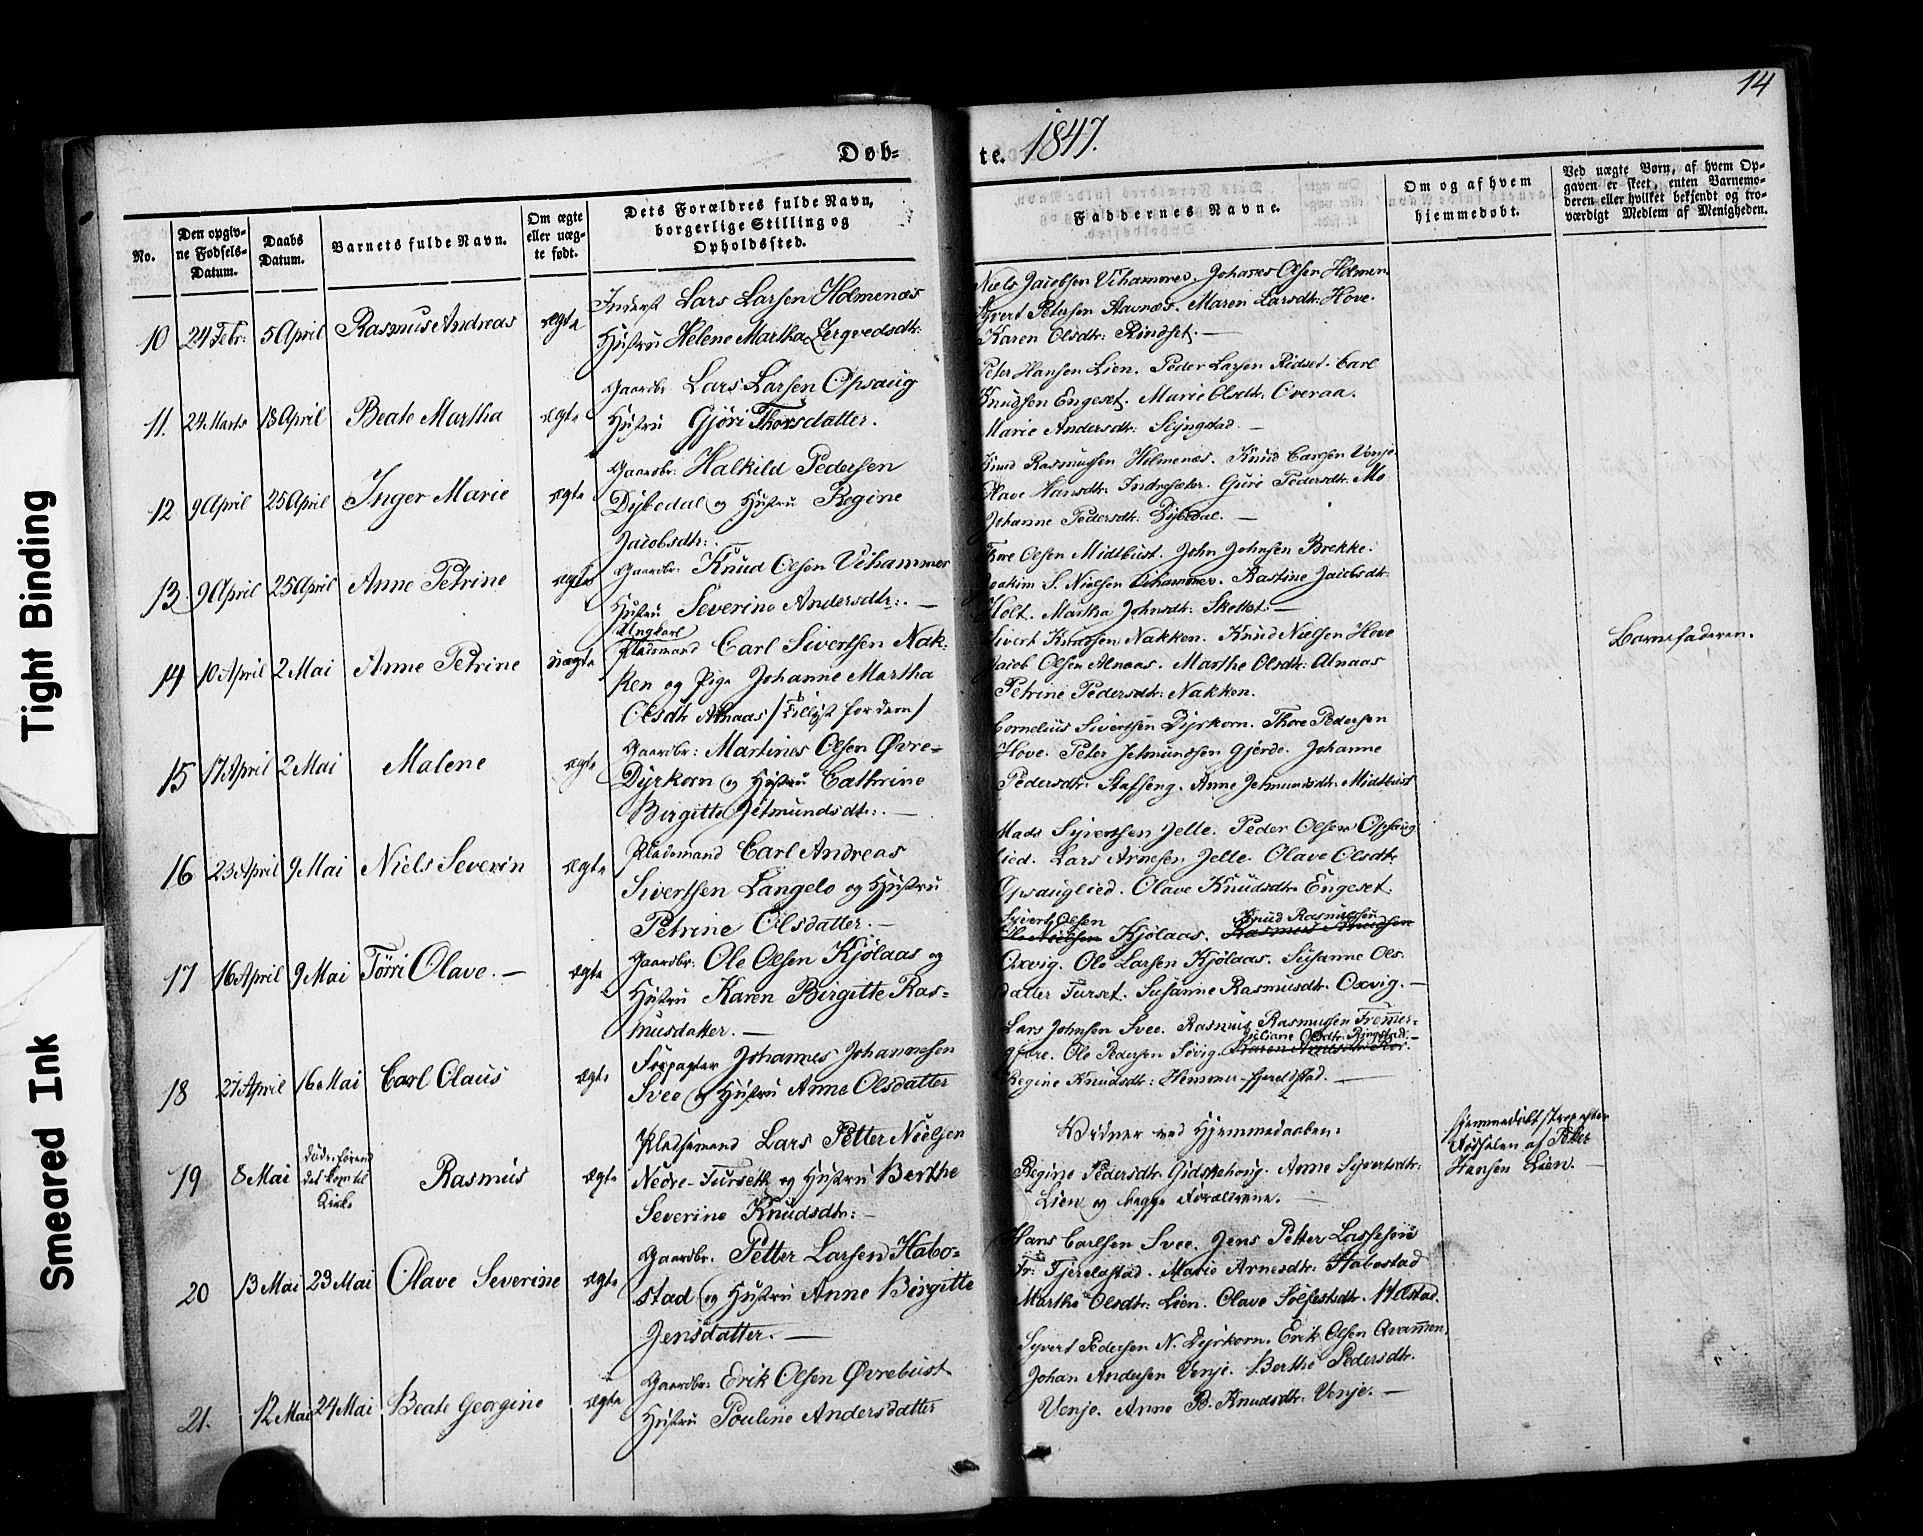 14
Døb-
te. 1847.
No.
Den opgiv-
ne Fødsels-
Datum.
Daabs
Datum.
Barnets fulde Navn.
Om ægte
eller uæg-
te født.
Dets Forældres fulde Navn,
borgerlige Stilling og
Opholdssted.
Faddernes Navne.
Om og af hvem
hjemmedøbt.
Ved uægte Børn, af hvem Op-
gaven er skeet, enten Barnemo-
deren eller hvilket bekjendt og tro-
værdigt Medlem af Menigheden.
10 24 Febr: 5 April Rasmus Andreas ægte
Inderst Lars Larsen Holmenæs
Hustru Helene Martha
Niels Jacobsen Vihammer. Johanes Olsen Holmen
Syvert Petersen Stavnæs. Maren Larsdtr: Hove.
Karen Olsdtr: Rindset. —
11. 24 Marts 18 April Beate Martha ægte
Gaardbr Lars Larsen Opsaug
Hustru Gjöri Thorsdatter.
Peter Hansen Lien. Peder Larsen Ridset. Carl
Knudsen Engeset. Marie Olsdtr: Overaa.
Marie Andersdtr: Slyngstad. —
12 9 April 25 April Inger Marie ægte
Gaardbr: Halkild Pedersen
Dybedal og Hustru Regine
Jacobsdtr:
Knud Rasmussen Holmenæs. Knud Carlsen Venje
Olave Hansdtr: Indresæter. Guri Pedersdtr: Mo
Johanne Pedersdtr: Dybedal. —
13. 9 April 25 April Anne Petrine ægte
Gaardbr: Knud Olsen Vihammer
Hustru Severine Andersdtr: —
Thore Olsen Midtbust. John Johnsen Brekke.
Joakim S. Nielsen Vihammer. Rastine Jacobsdtr:
Holt. Martha Johnsdtr: Skottet: —
14 10 April 2 Mai Anne Petrine uægte
Ungkarl
Pladsmand Carl Sivertsen Nak-
ken og Pige Johanne Martha
Olsdtr Alnaas /
Sivert Knudsen Nakken. Knud Nielsen Hove
Jacob Olsen Alnaas. Marthe Olsdtr: Alnaas
Petrine Pedersdtr: Nakken.
Barnefaderen.
15 17 April 2 Mai Malene ægte
Gaardbr: Martines Olsen Øvre-
Dyrkorn og Hustru Cathrine
Birgitte Jetmundsdtr: —
Cornelius Sivertsen Dyrkorn. Thore Pedersen
Hove. Peter Jetmundsen Gjerde. Johanne
Pedersdtr: Stafseng. Anne Jetmundsdtr: Midtbust
16 23 April 9 Mai Niels Severin ægte
Pladsmand Carl Andreas
Sivertsen Langelo og Hustru
Petrine Olsdatter. —
Mads Syvertsen Jelle. Peder Olsen Opsaug
lied. Lars Arnesen Jelle. Olave Olsdtr
Opsauglied. Olave Knudsdtr: Engeset.
17 16 April 9 Mai Tørri Olave. — ægte
Gaardbr: Ole Olsen Kjölaas og
Hustru Karen Birgitte Ras-
musdatter. —
Syvert Olsen Knud Rasmussen
Ole Nielsen Kjölaas. Rasmus Knudsen
Oxvig. Ole Larsen Kjölaas. Susanne Ols-
datter Furset. Susanne Rasmusdtr: Oxvig. —
18 27 April 16 Mai Carl Claus ægte
Forpagter Johannes Johannesen
Svee og Hustru Anne Olsdatter
Lars Johnsen Svee. Rasmus Rasmussen Fremer-
Juliane Olsdtr: Ringstad.
gjære. Ole Pedersen Søvig.
Regine Knudsdtr: Hemmer-fjeldstad. —
19 8 Mai
døde förend
det kom til
Kirke
Rasmus ægte
Pladsemand Lars Petter Nielsen
Nedre-Furseth og Hustru Berthe
Severine Knudsdtr: —
Vidner ved Hjemmedaaben:
Regine Pedersdtr: Gidskehoug. Anne Syvertsdtr:
Lien og begge Forældrene. —
Hjemmedöbt strax efter
Födselen af Peter
Hansen Lien. —
20 13 Mai 23 Mai Olave Severine ægte
Gaardbr. Petter Larsen Habo-
stad og Hustru Anne Birgitte
Jensdatter. —
Hans Carlsen Svee. Jens Petter Lassesen
Fr: Fjereldstad. Marie Arnesdtr: Habostad
Marthe Olsdtr: Lien. Olave Sølfestsdtr.
21. 12 Mai 24 Mai Beate Georgine ægte
Gaardbr: Erik Olsen Øvrebust
Hustru Pouline Andersdatter
Syvert Pedersen N. Dyrkorn. Erik Olsen Qvammen.
Johan Andersen Venje. Berthe Pedersdtr.
Venje. Anne B. Knudsdtr: Venje. —
Tight Binding
Smeared Ink